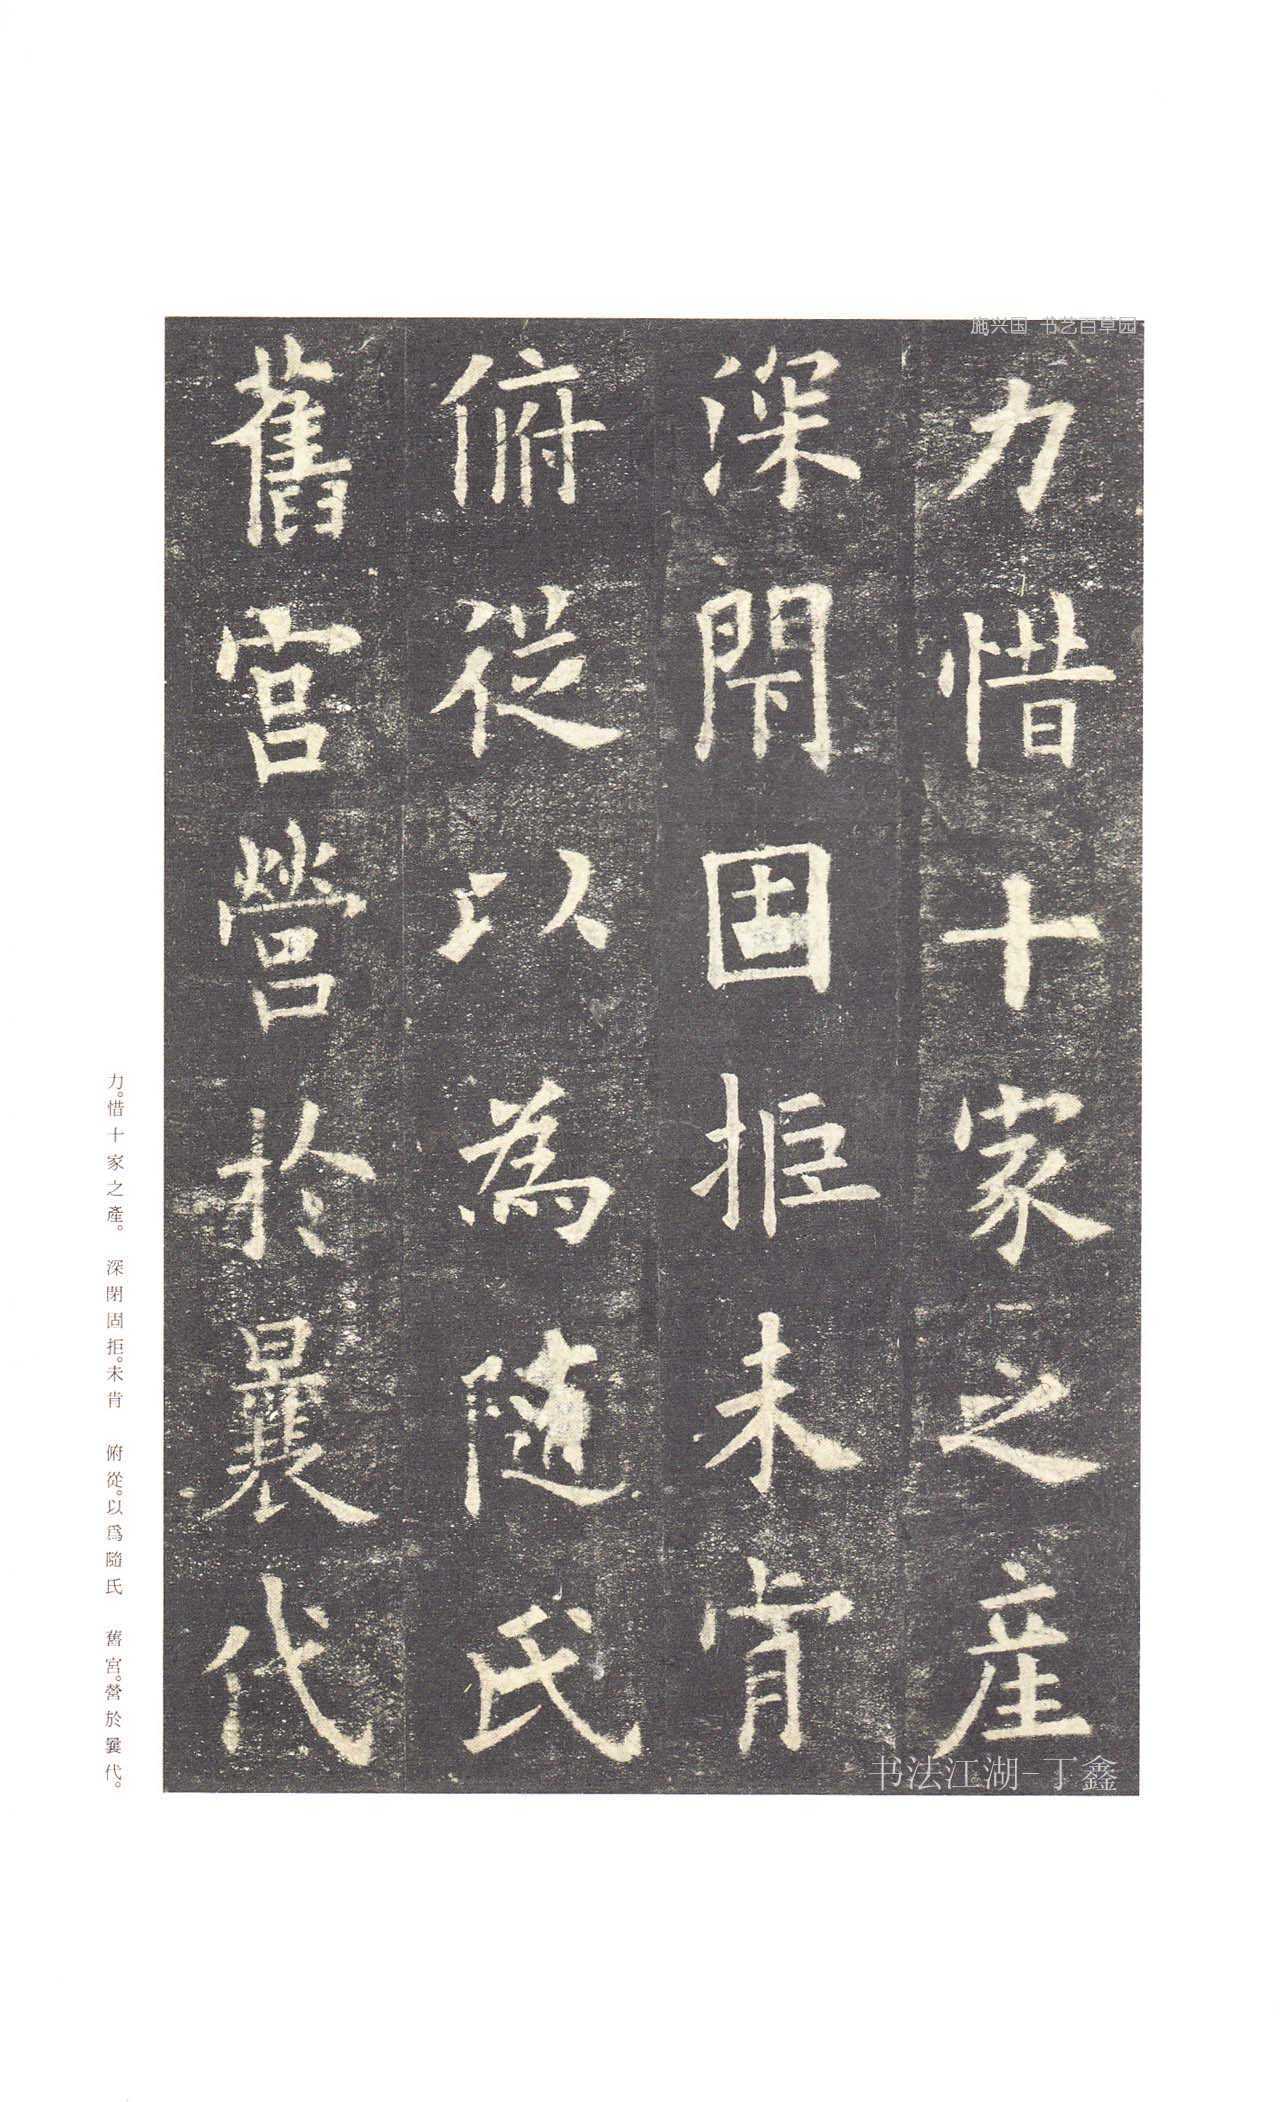 施兴国 书艺百草园
力惜十家之產
深閇固拒未肯
俯從以為隨氏
舊宮營於曩代
书法江湖-丁鑫
力。惜十家之產。 深閉固拒。未肯 俯從。以爲隨氏 舊宮。營於曩代。